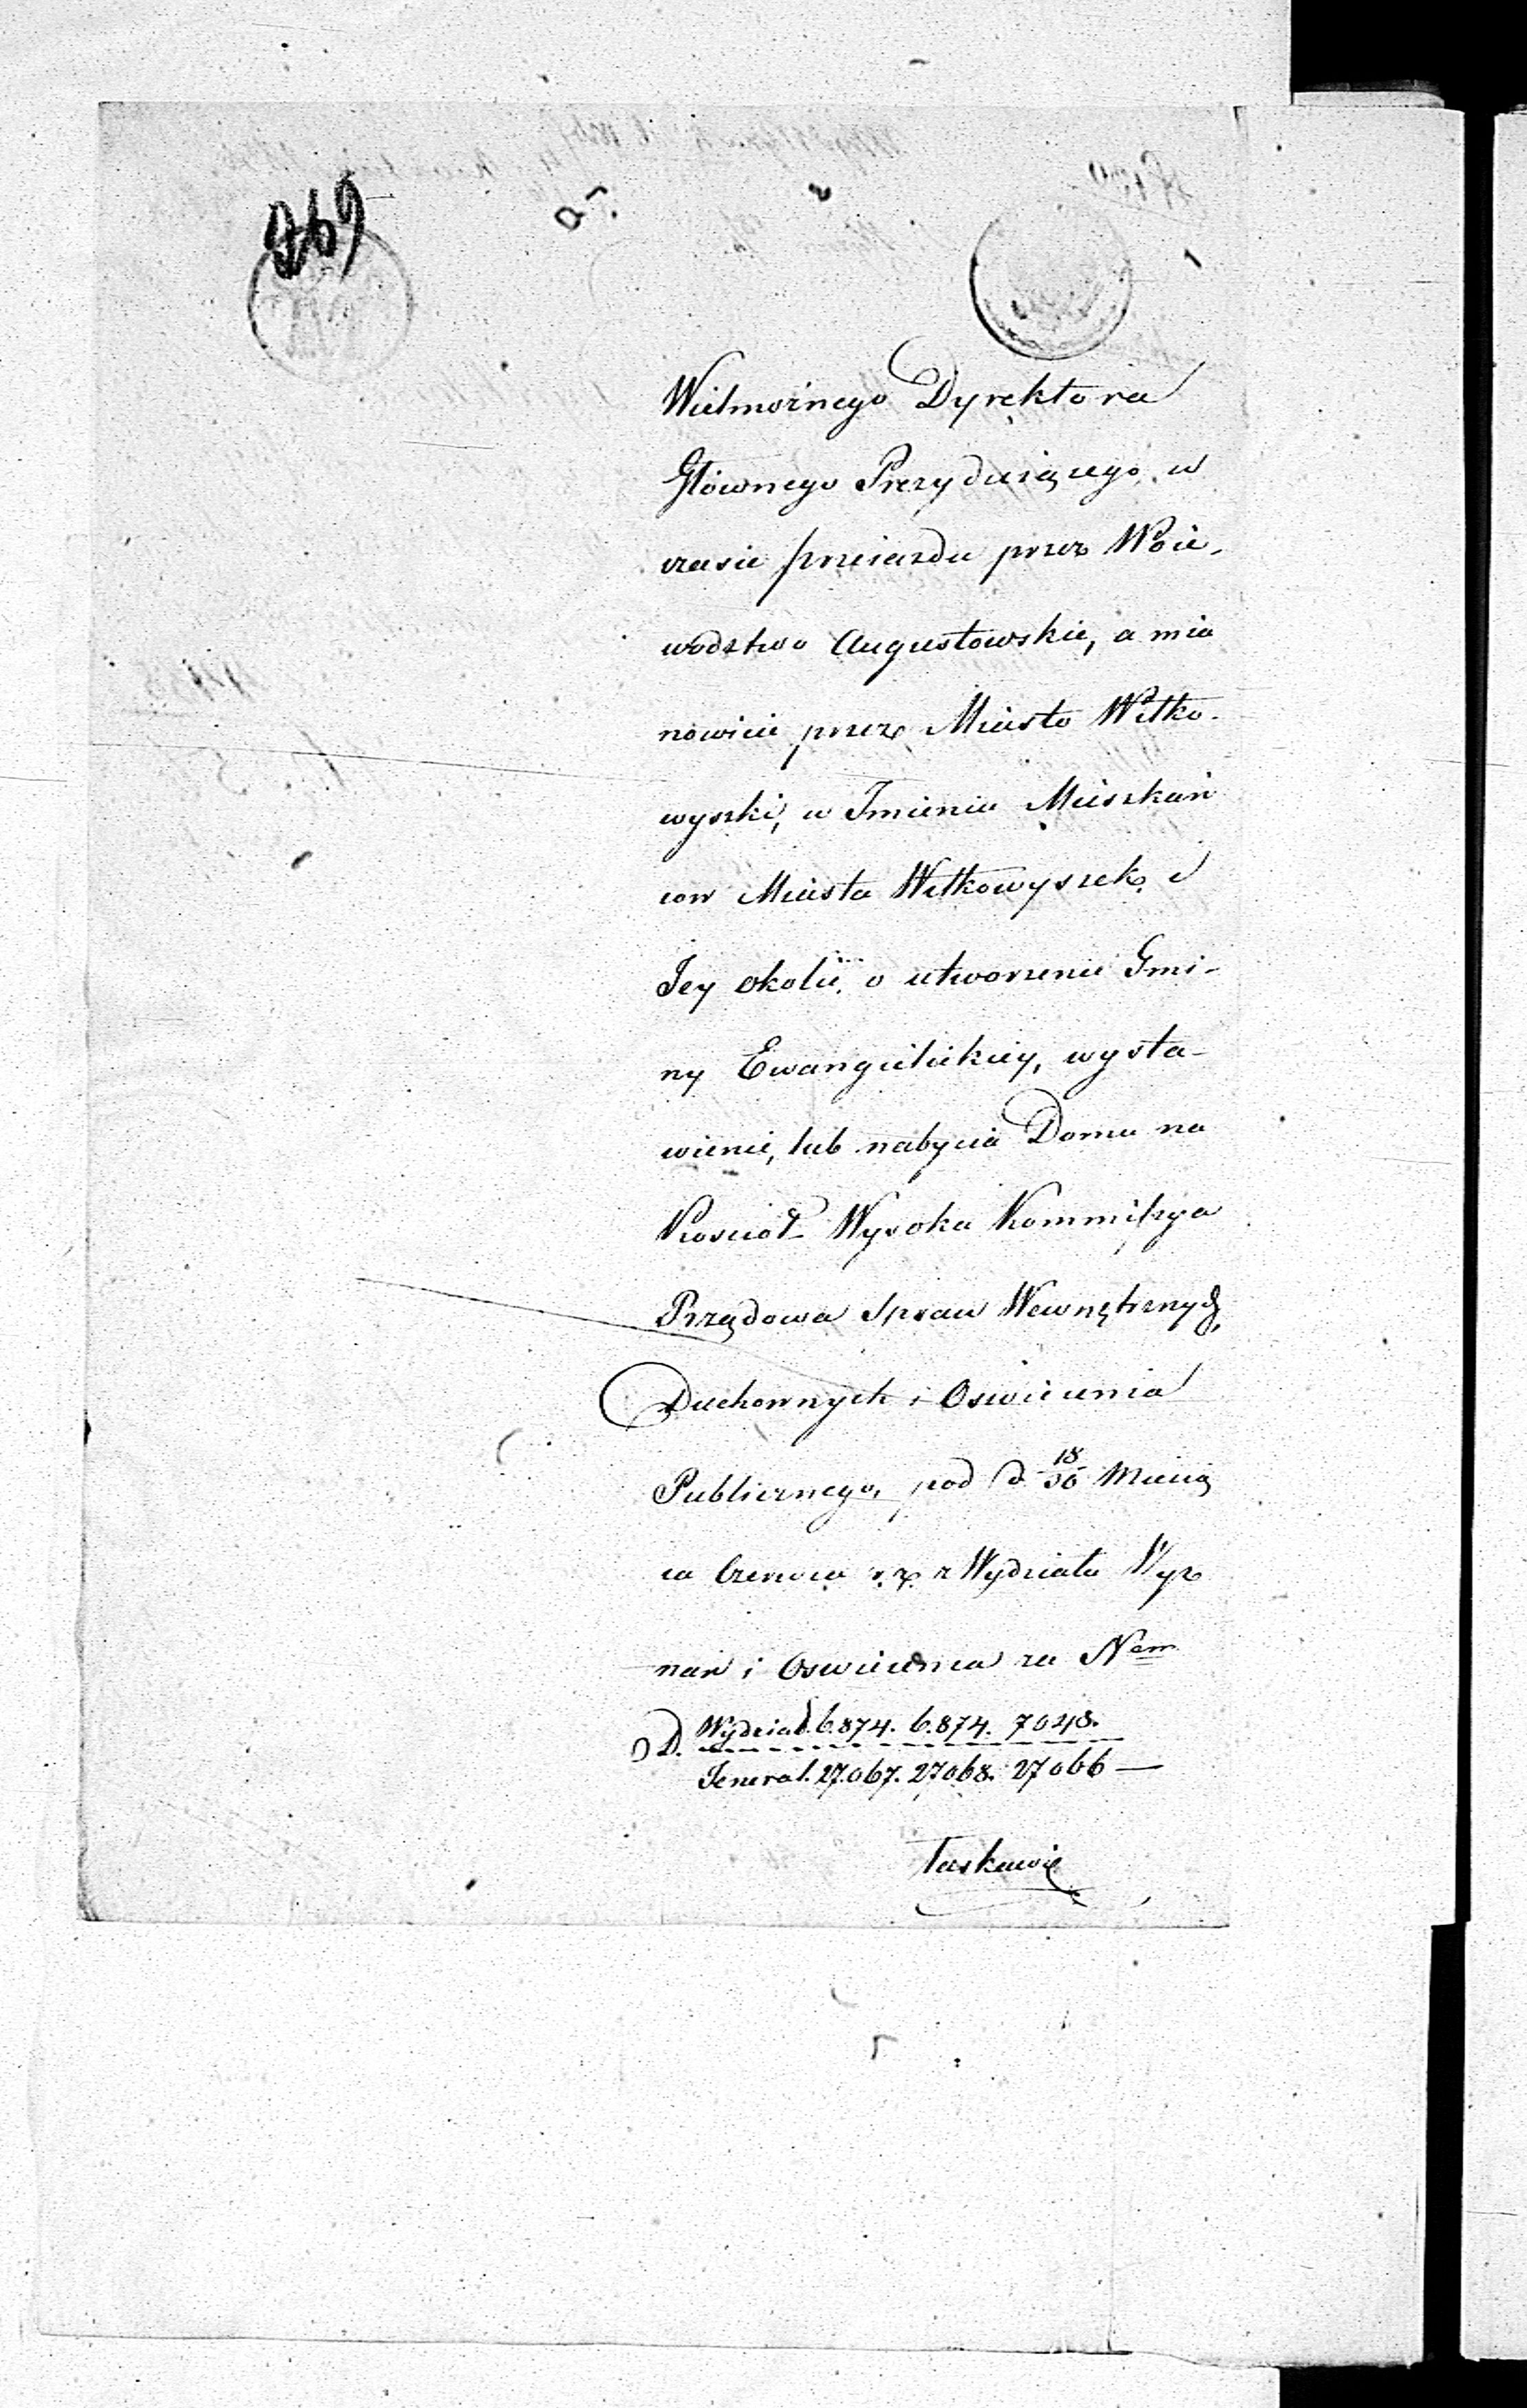 269
Wielmożnego Dyrektora
Głównego Prezyduiącego, w
czasie przeiazdu przez Woie-
wodztwo Augustowskie, a mia
nowicie przez Miasto Wiłko-
wyszki, w Imieniu Mieszkań
cow Miasta Wiłkowyszek i
Jey okolic, o utworzenie Gmi-
ny Ewangielickiey, wysta-
wienie, lub nabycia Domu na
Kosciół Wysoka Kommissya
Rządowa Spraw Wewnętrznych,
Duchownych i Oswiecenia
Publicznego, pod d. 18/30 Miesią
ca Czerwca r. z. z Wydziału Wyz
nań i Oswiecenia za Nem
D. Wydział. 6.874. 6.874. 7048.
Jeneral. 27.067. 27068. 27066 —
łaskawie